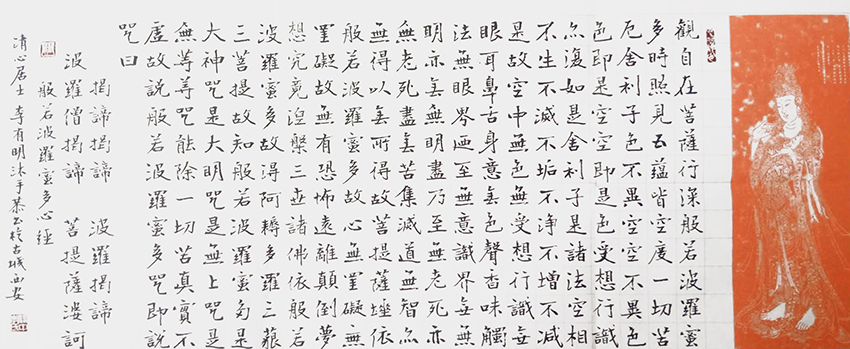 觀自在菩薩行深般若波羅蜜
多時照見五蘊皆空度一切苦
厄舍利子色不異空空不異色
色即是空空即是色受想行識
亦復如是舍利子是諸法空相
不生不滅不垢不淨不增不減
是故空中無色無受想行識無
眼耳鼻舌身意無色聲香味觸
法無眼界乃至無意識界無無
明亦無無明盡乃至無老死亦
無老死盡無苦集滅道無智亦
無得以無所得故菩提薩埵依
般若波羅蜜多故心無罣礙無
罣礙故無有恐怖遠離顛倒夢
想究竟涅槃三世諸佛依般若
波羅蜜多故得阿耨多羅三藐
三菩提故知般若波羅蜜多是
大神咒是大明咒是無上咒是
無等等咒能除一切苦真實不
虛故說般若波羅蜜多咒即說
咒曰
揭諦揭諦 波羅揭諦
波羅僧揭諦 菩提薩婆訶
般若波羅蜜多心經
清心居士 李有明沐手恭書於古城西安